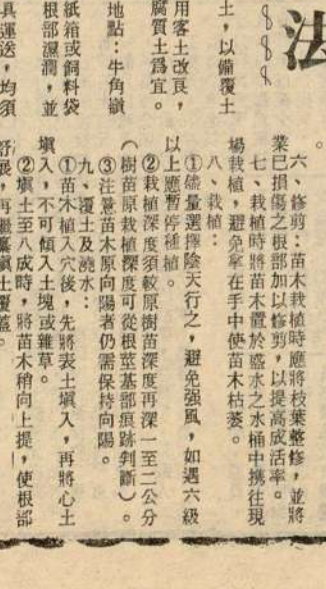 法
土，以備覆土
用客土改良，
腐質土爲宜。
地點：牛角嶺
紙箱或飼料袋
根部濕潤，並
具運送，均須
六、修剪：苗木栽植時應將枝葉整修，並將
業已損傷之根部加以修剪，以提高成活率。
七、栽植時將苗木置於盛水之水桶中携往現
場栽植，避免拿在手中使苗木枯萎。
八、栽植：
①儘量選擇陰天行之，避免強風，如遇六級
以上應暫停種植。
②栽植深度須較原樹苗深度再深一至二公分
（樹苗原栽植深度可從根莖基部痕跡判斷）。
③注意苗木原向陽者仍需保持向陽。
九、覆土及澆水：
①苗木植入穴後，先將表土塡入，再將心土
塡入，不可傾入土塊或雜草。
②塡土至八成時，將苗木稍向上提，使根部
舒展，再繼續塡土覆蓋。